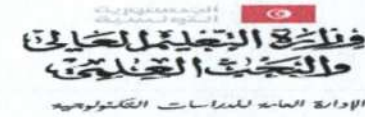 الجمهورية
التونسية
وزارة التعليم العالي
والبحث العلمي
الإدارة العامة للدراسات التكنولوجية